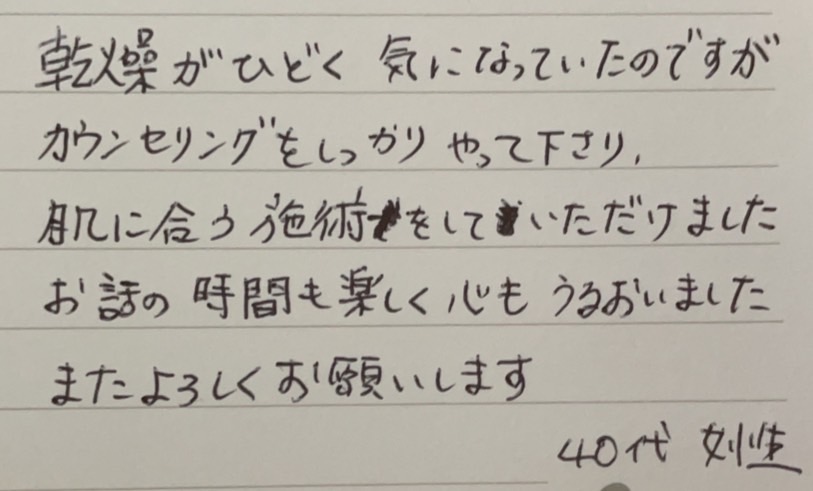 乾燥がひどく 気になっていたのですが
カウンセリングをしっかりやって下さり、
肌に合う施術をしていただけました
お話の時間も楽しく心もうるおいました
またよろしくお願いします
40代 女性